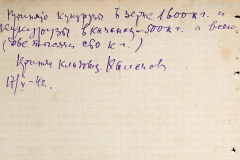 Принято кукурузы в зерне 1600 кг. и
Кукурузы в качанах – 500 кг. и всего
(две тысячи сто кг.)
Принял Кладовщ.
17/V – 42.